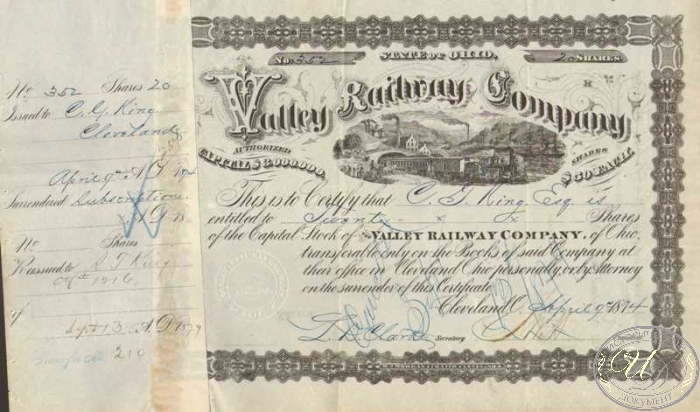 No 352 Shares 20
Issued to C. G. King
Cleveland
April 9th A.D. 1874
Surrendered Subscription
A.D. 18
No Shares
Reissued to
of # 1916
of
Sept 13 A.D. 1879
210
No. 352 STATE OF OHIO. 20 SHARES
Valley Railway Company
AUTHORIZED
CAPITAL $3,000,000.
SHARES
$50 EACH.
This is to Certify that C. G. King, Esq is
entitled to Twenty - x x Shares
of the Capital Stock of the VALLEY RAILWAY COMPANY, of Ohio,
transferable only on the Books of said Company at
their office in Cleveland Ohio personally or by Attorney
on the surrender of this Certificate
Cleveland O. April 9th 1874
Clark Secretary
ДОКУМЕНТ